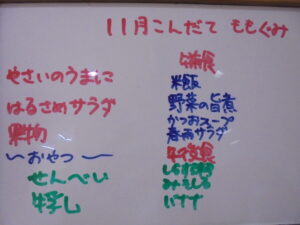 11月こんだて ももぐみ
やさいのうまに
はるさめサラダ
果物
〜おやつ〜
せんべい
牛乳
午前食
米飯
野菜の旨煮
かつおスープ
春雨サラダ
午後食
みそしる
バナナ